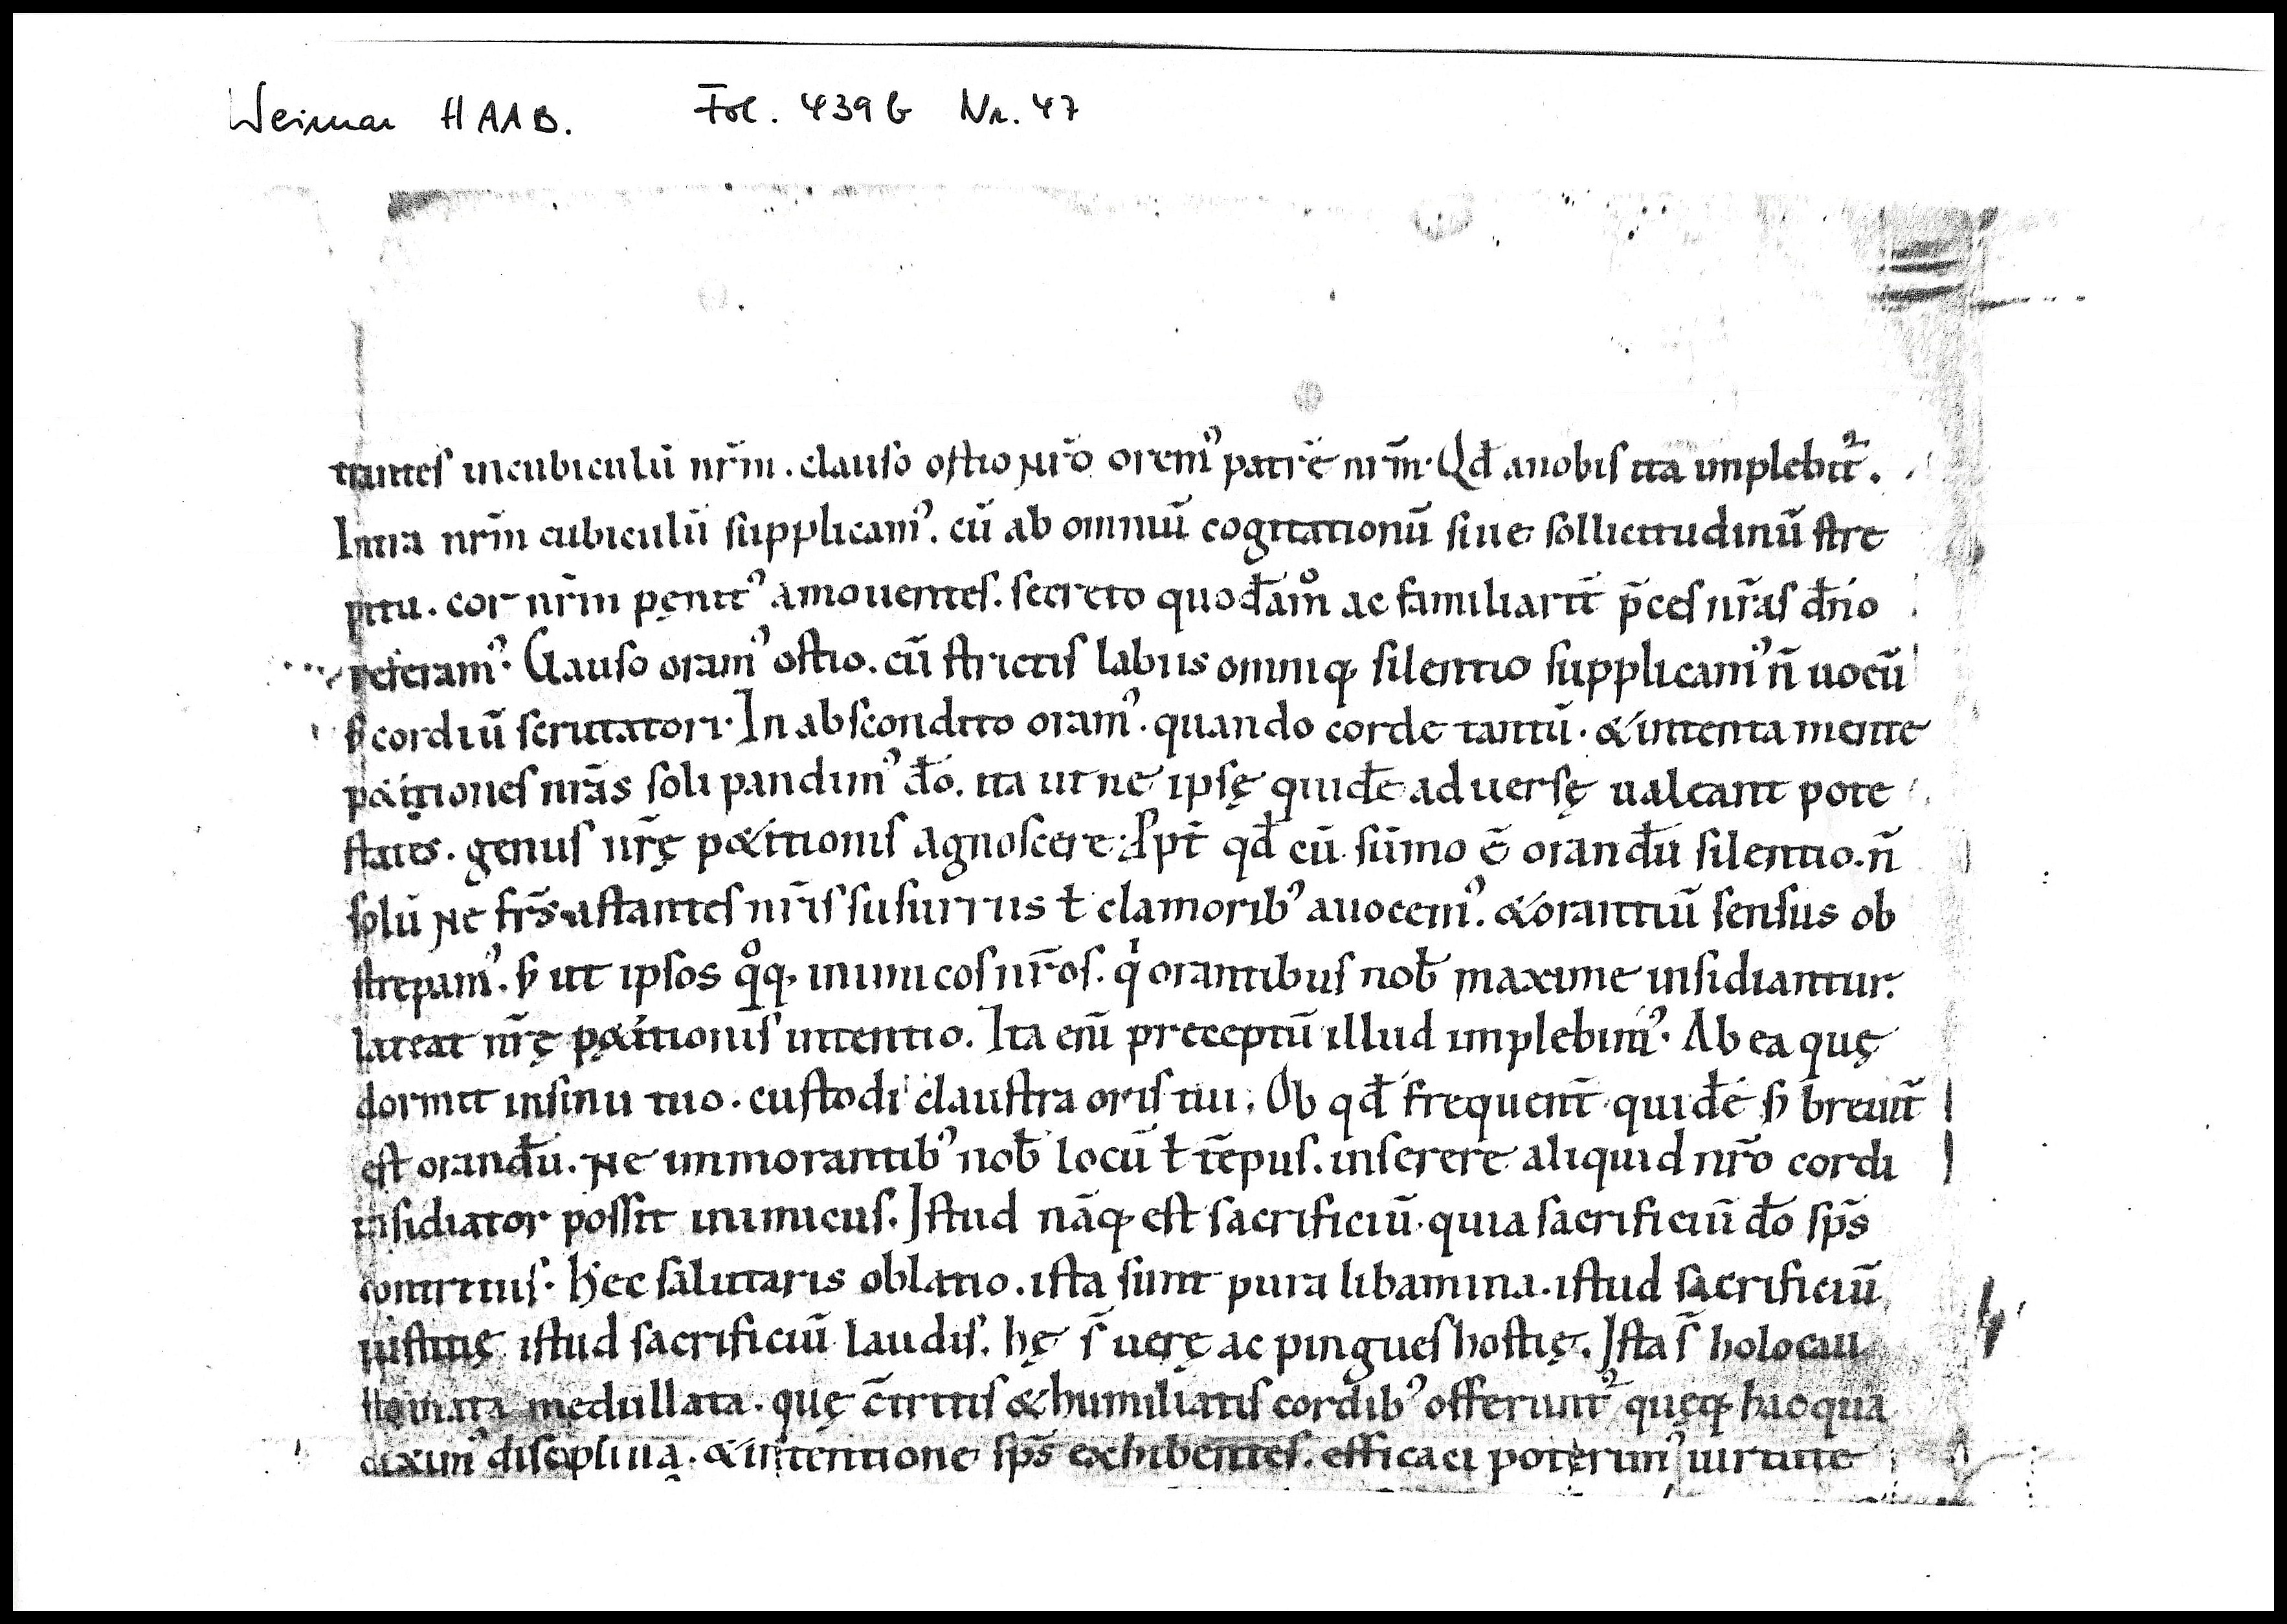 Weimar HAAB. Fol. 439b Nr. 47
trantes incubiculū nr̄m. clauso ostio nr̄o orem᾽ patrē nr̄m. Qđ anobis ita implebit᷑.
Intra nr̄m cubiculū supplicam᾽. cū ab omniū cogitationū siue sollicitudinū stre
pitu. cor nr̄m pęnit᾽ amouentes. secreto quodāmͦ ac familiarit̄ p̄ces nr̄as dn̄o
referam᾽. Clauso oram᾽ ostio. cū strictis labiis omniq; silentio supplicam᾽ n̄ uocū
ẜ cordiū scrutatori. In abscondito oram᾽. quando corde tantū. &intenta mente
p&itiones nr̄as soli pandim᾽ do̅. ita ut ne ipsę quidē aduersę ualeant pote
states. genus nr̄ę p&itionis agnoscere. Ꝓpt̄ qđ cū sūmo ē orandū silentio. n̄
solū ne fr̄s astantes nr̄is susurriis ƚ clamorib᾽ auocem᾽. &orantiū sensus ob
strepam᾽. ẜ ut ipsos qͦq; inimicos nr̄os. qⁱ orantibus nob̄ maxime insidiantur.
lateat nr̄ę p&itionis intentio. Ita eni̅ preceptū illud implebim᾽. Ab ea quę
dormit insinu tuo. custodi claustra oris tui. Ob qđ frequent̄ quidē ẜ breuit̄
est orandū. ne immorantib᾽ nob̄ locū ƚ tēpus. inserere aliquid nr̄o cordi
insidiator possit inimicus. Istud nāq; est sacrificiū. quia sacrificiū do̅ sp̄s
contritus. Hec salutaris oblatio. ista sunt pura libamina. istud sacrificiū
iustitię istud sacrificiū laudis. hę s̄ uerę ac pingues hostię. Ista s̄ holocau
medullata. quę c̄tritis &humiliatis cordib᾽ offerunt᷑ quęq; hac qua
dixim᾽ disciplina. &intentione sp̄s exhibentes. efficaci poterim᾽ uirtute